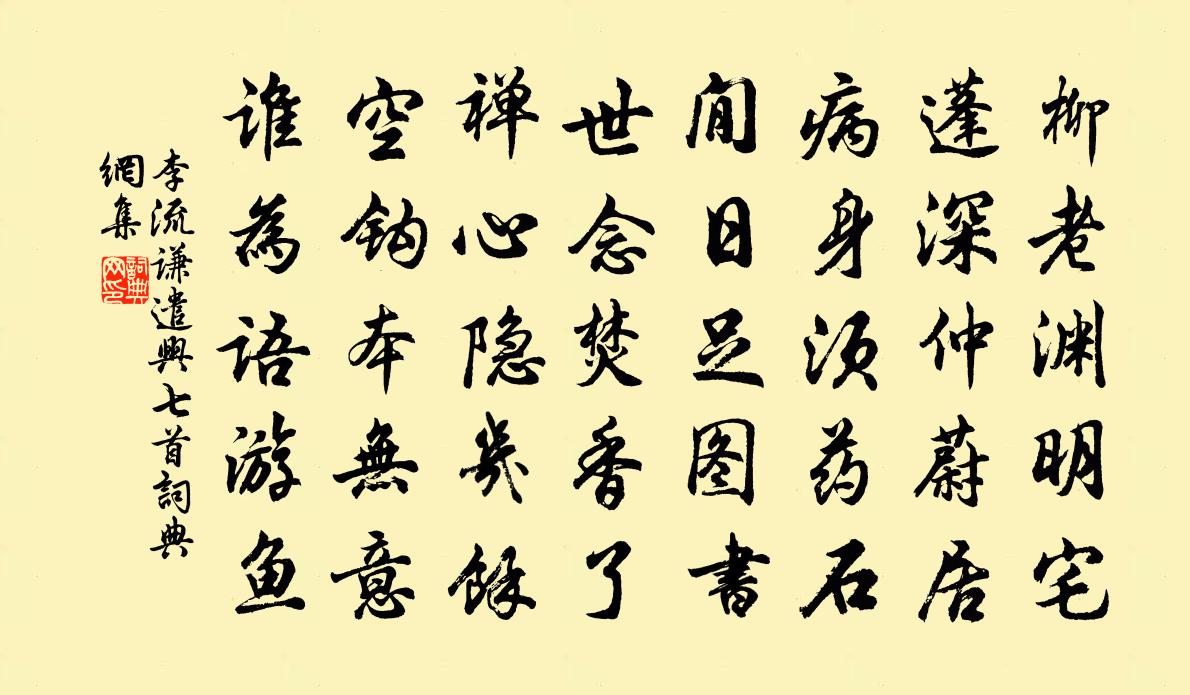 柳老渊明宅
蓬深仲蔚居
病身须药石
闲日足图書
世念焚香了
禅心隐幾餘
空鈎本無意
谁為語游鱼
李流谦遣興七首詞典
網集
詞典網印